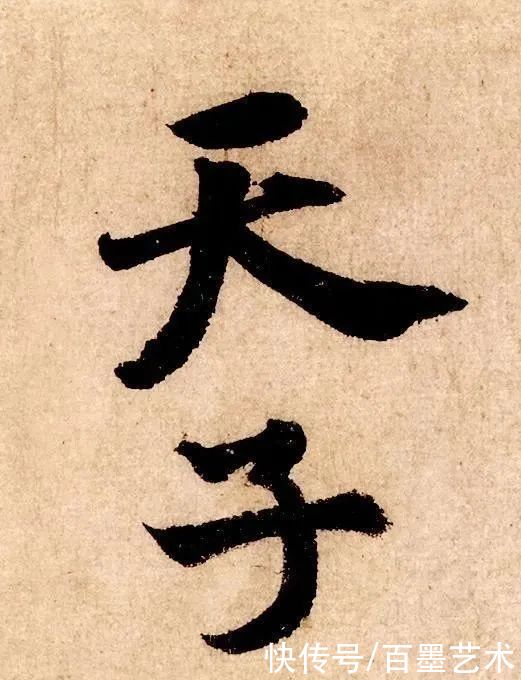 天
子
快传号/百墨艺术